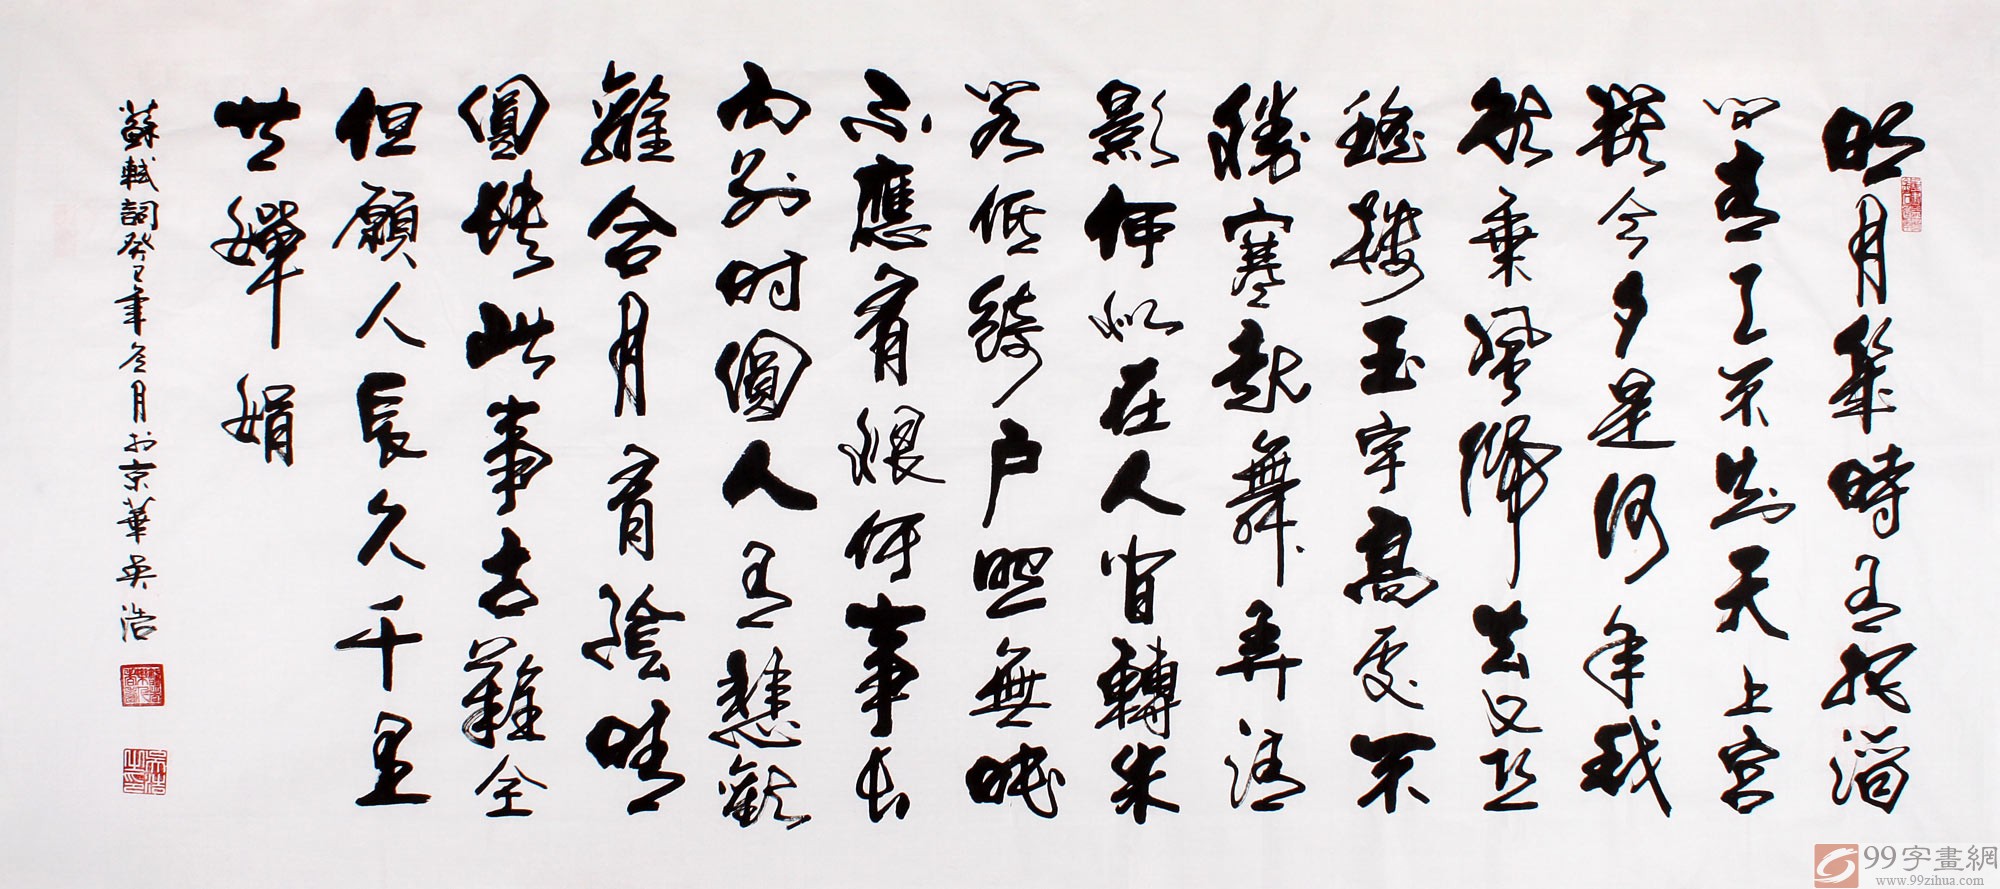 明月幾時有把酒
問青天不知天上宮
闕今夕是何年我
欲乘風歸去又恐
瓊樓玉宇高處不
勝寒起舞弄清
影何似在人間轉朱
閣低綺户照無眠
不應有恨何事長
向别时圓人有悲歡
離合月有陰晴
圓缺此事古難全
但願人長久千里
共嬋娟
蘇軾詞癸巳年冬月於京華吴浩
99字畫網
www.99zihua.com